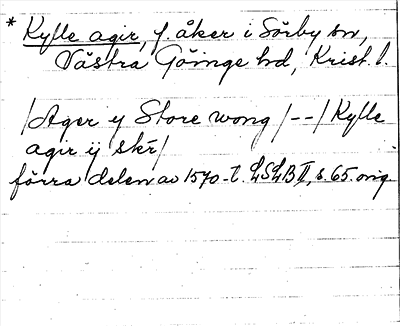 * Kylle agir, f. åker i Sörby sn,
Västra Göinge hd, Krist. l.
/Ager y Store wong/--/Kylle
agir ij skr/
förra delen av 1570-t. LSLB II, s. 65. orig